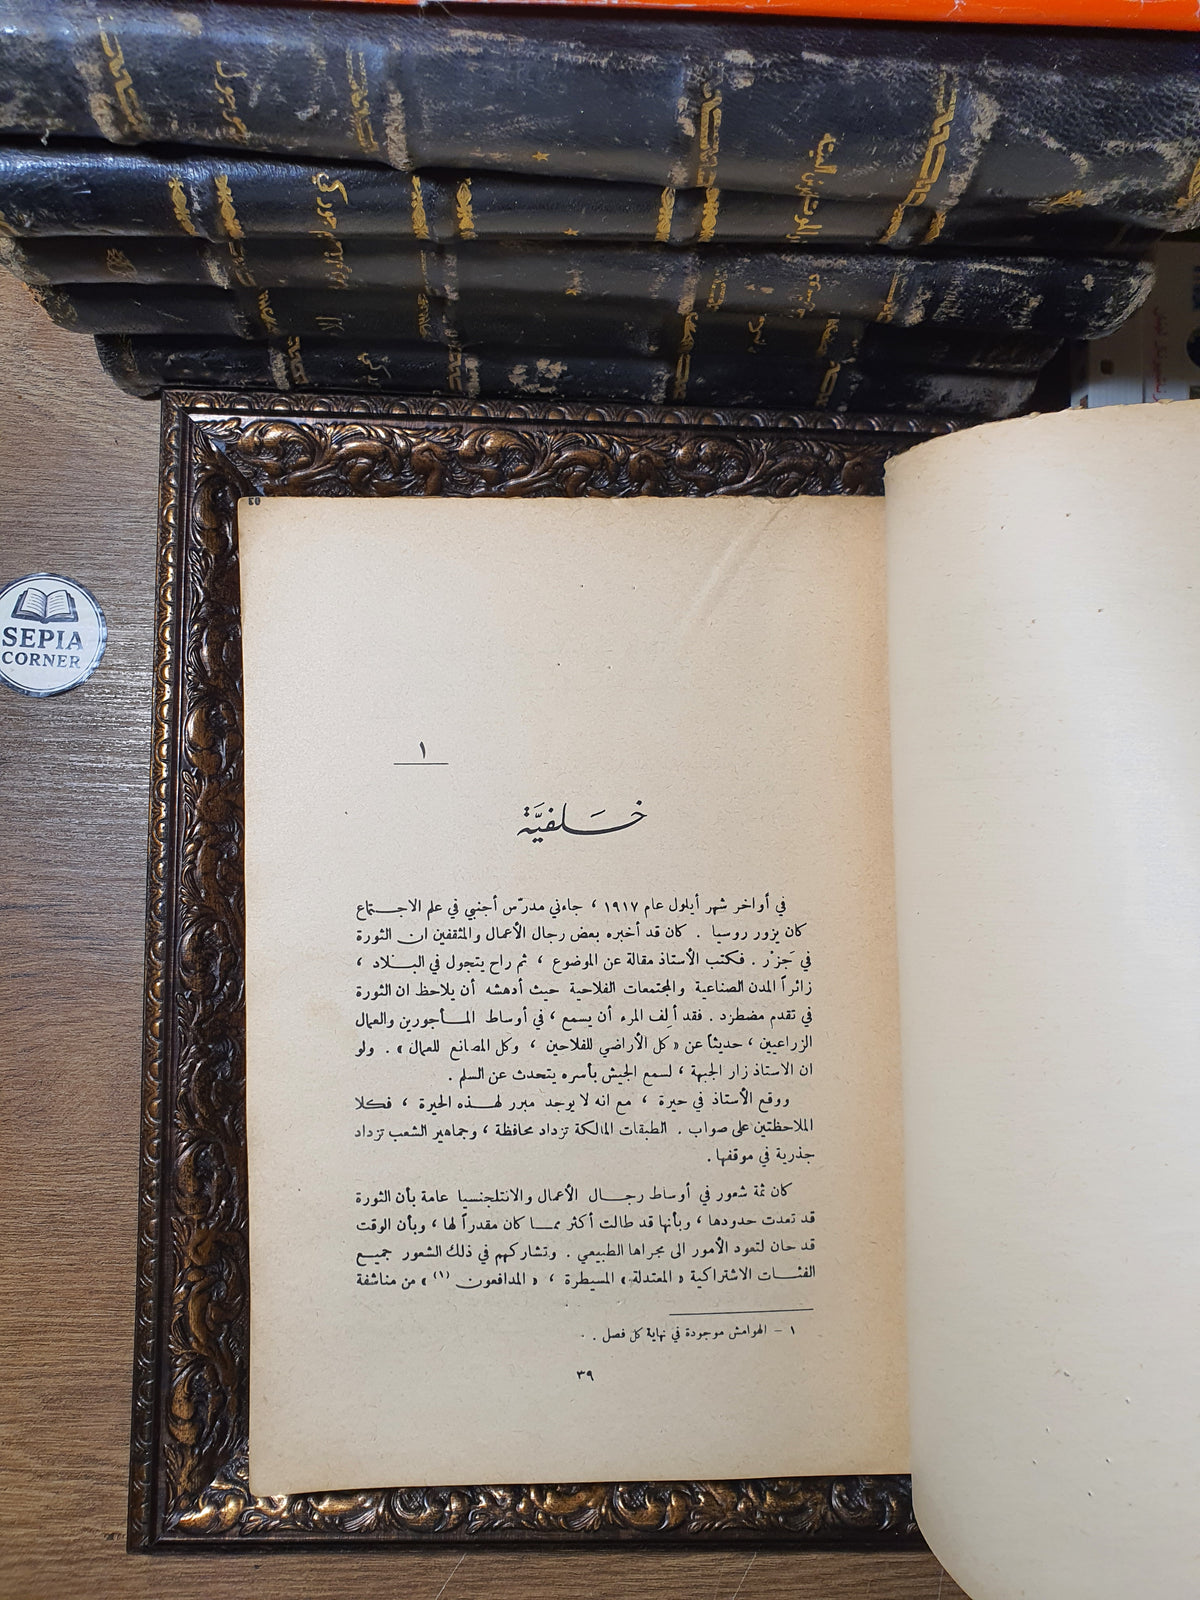 SEPIA
CORNER
١
خَلفيَّة
في أواخر شهر أيلول عام ١٩١٧ ، جاءني مدرّس أجنبي في علم الاجتماع
كان يزور روسيا . كان قد أخبره بعض رجال الأعمال والمثقفين ان الثورة
في جَزْر . فكتب الأستاذ مقالة عن الموضوع ، ثم راح يتجول في البلاد ،
زائراً المدن الصناعية والمجتمعات الفلاحية حيث أدهشه أن يلاحظ ان الثورة
في تقدم مضطرد . فقد ألِف المرء أن يسمع ، في أوساط المأجورين والعمال
الزراعيين ، حديثاً عن « كل الأراضي للفلاحين ، وكل المصانع للعمال » . ولو
ان الاستاذ زار الجبهة ، لسمع الجيش بأسره يتحدث عن السلم .
ووقع الأستاذ في حيرة ، مع انه لا يوجد مبرر لهذه الحيرة ، فكلا
الملاحظتين على صواب . الطبقات المالكة تزداد محافظة ، وجماهير الشعب تزداد
جذرية في موقفها .
كان ثمة شعور في أوساط رجال الأعمال والانتلجنسيا عامة بأن الثورة
قد تعدت حدودها ، وبأنها قد طالت أكثر مما كان مقدراً لها ، وبأن الوقت
قد حان لتعود الأمور الى مجراها الطبيعي . وتشاركهم في ذلك الشعور جميع
الفئات الاشتراكية « المعتدلة » المسيطرة ، « المدافعون (١) » من مناشفة
١ – الهوامش موجودة في نهاية كل فصل .
٣٩